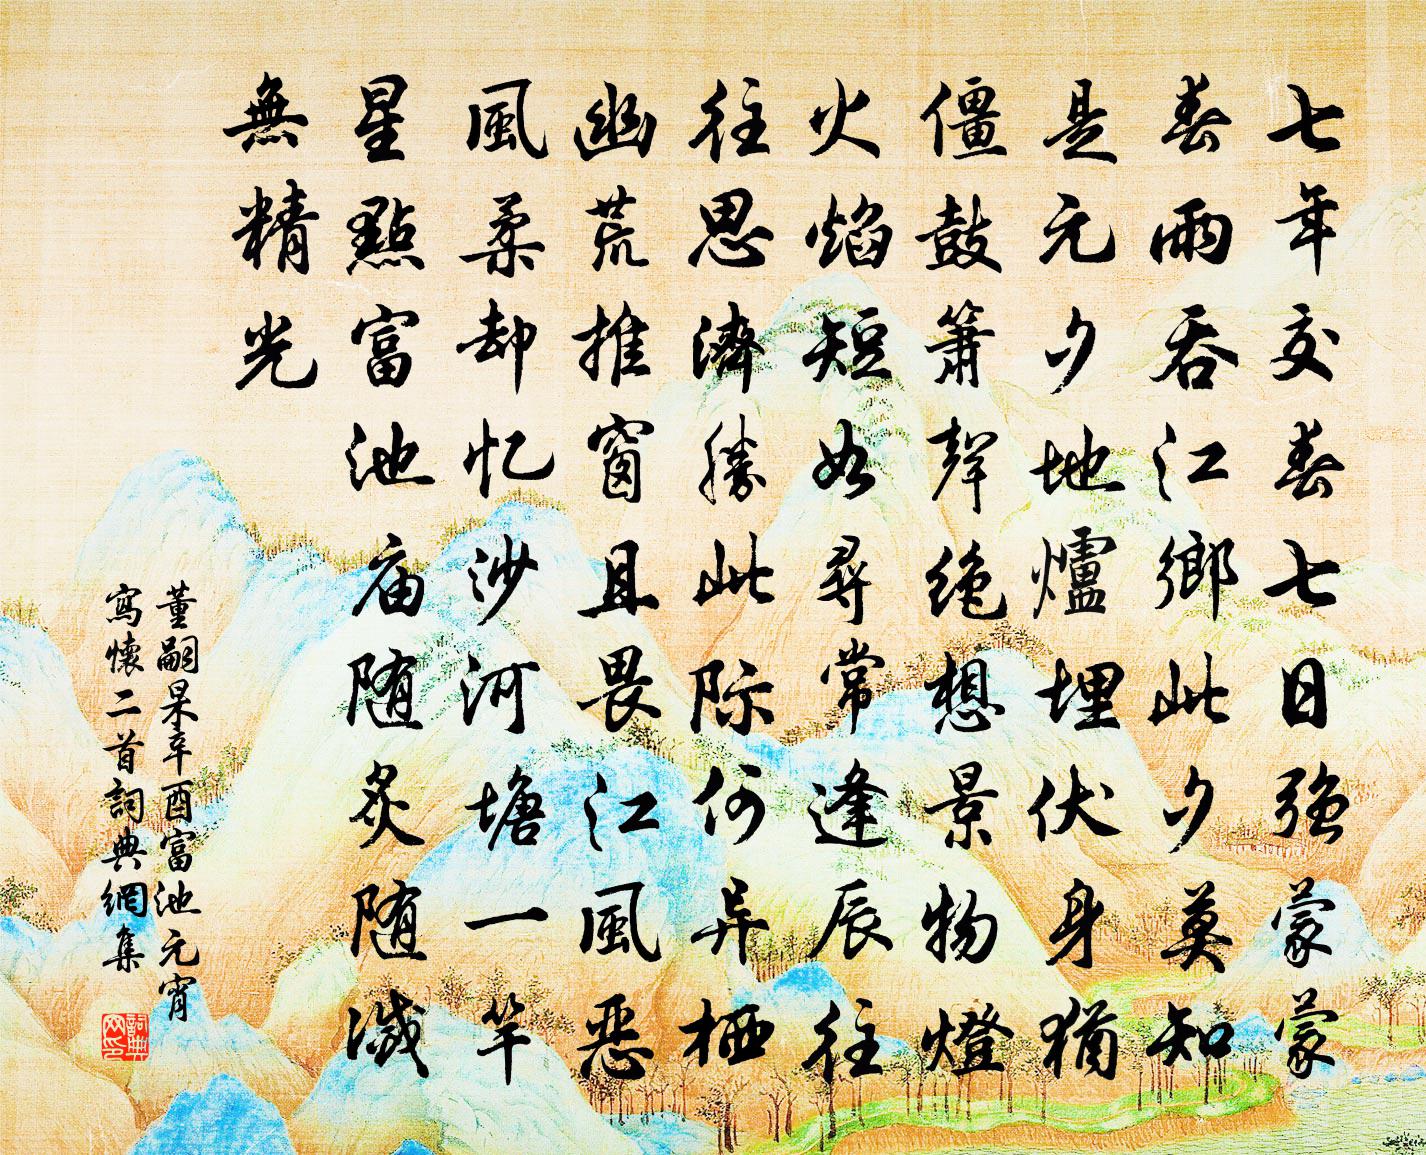 七年交春七日強蒙蒙
春雨吞江鄉此夕莫知
是元夕地爐埋伏身猶
僵鼓簫聲絕想景物燈
火焰短如尋常逢辰往
往思濟勝此际何异栖
幽荒推窗且畏江風惡
風柔却忆沙河塘一竿
星點富池庙随炙随滅
無精光
董嗣杲辛酉富池元宵
寫懷二首詞典網集
詞典
网印